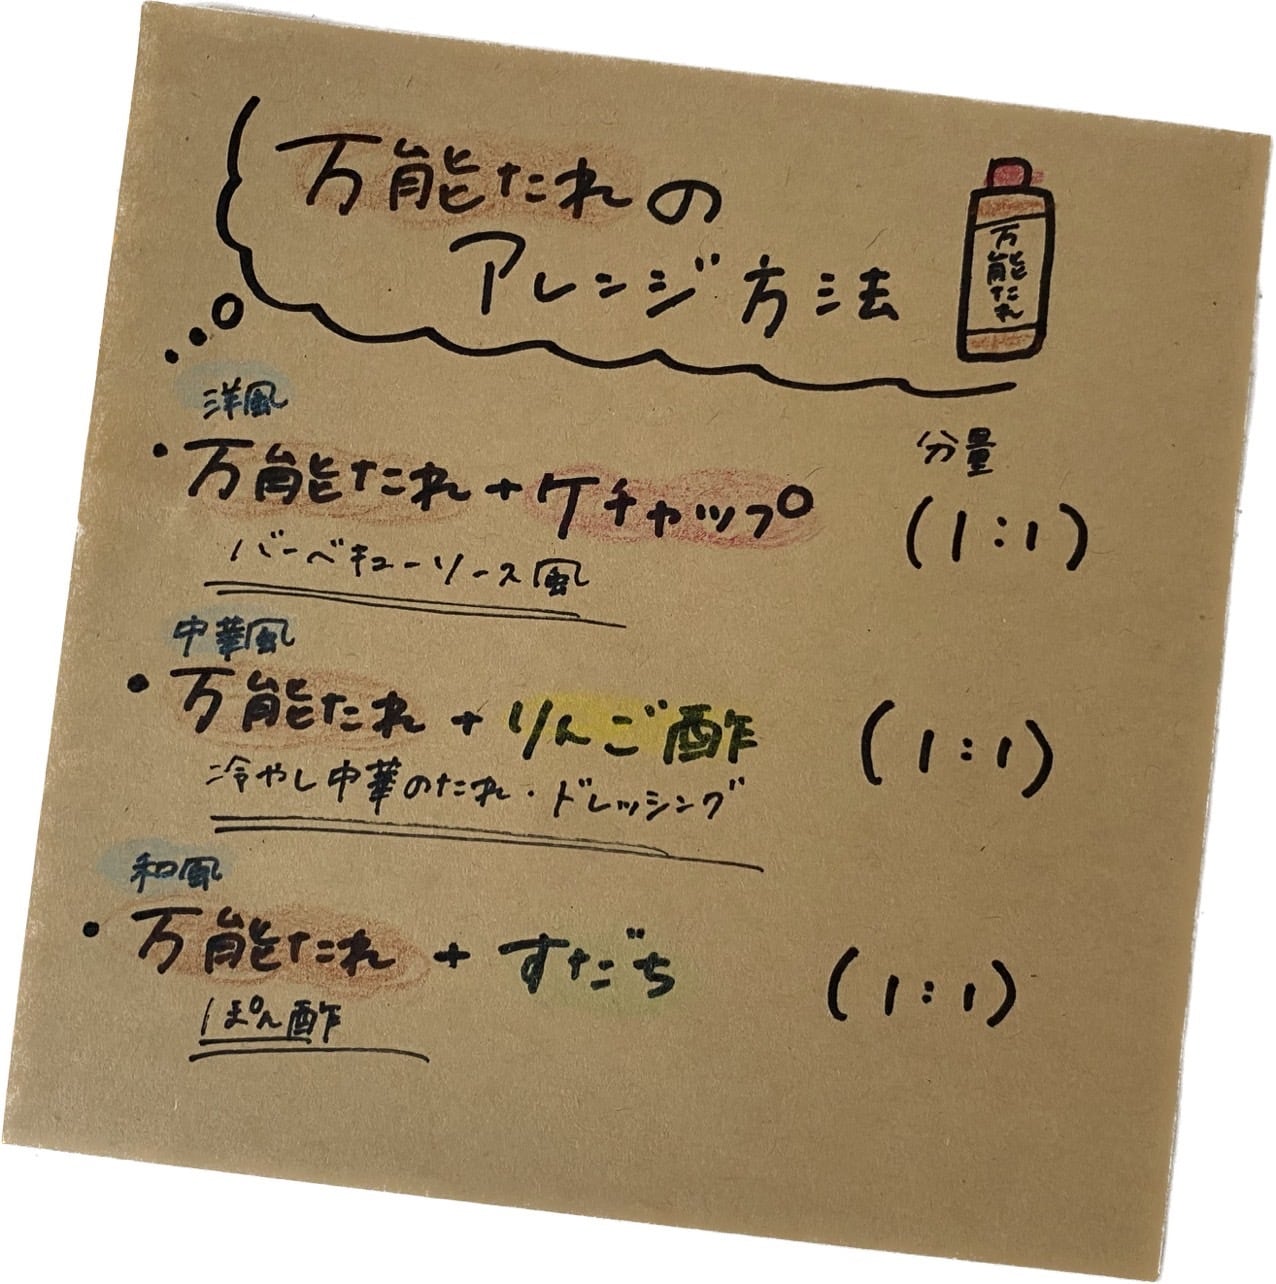 万能たれの
アレンジ方法
万能たれ
洋風
分量
・万能たれ+ケチャップ (1:1)
バーベキューソース風
中華風
・万能たれ+りんご酢 (1:1)
冷やし中華のたれ・ドレッシング
和風
・万能たれ+すだち (1:1)
ぽん酢